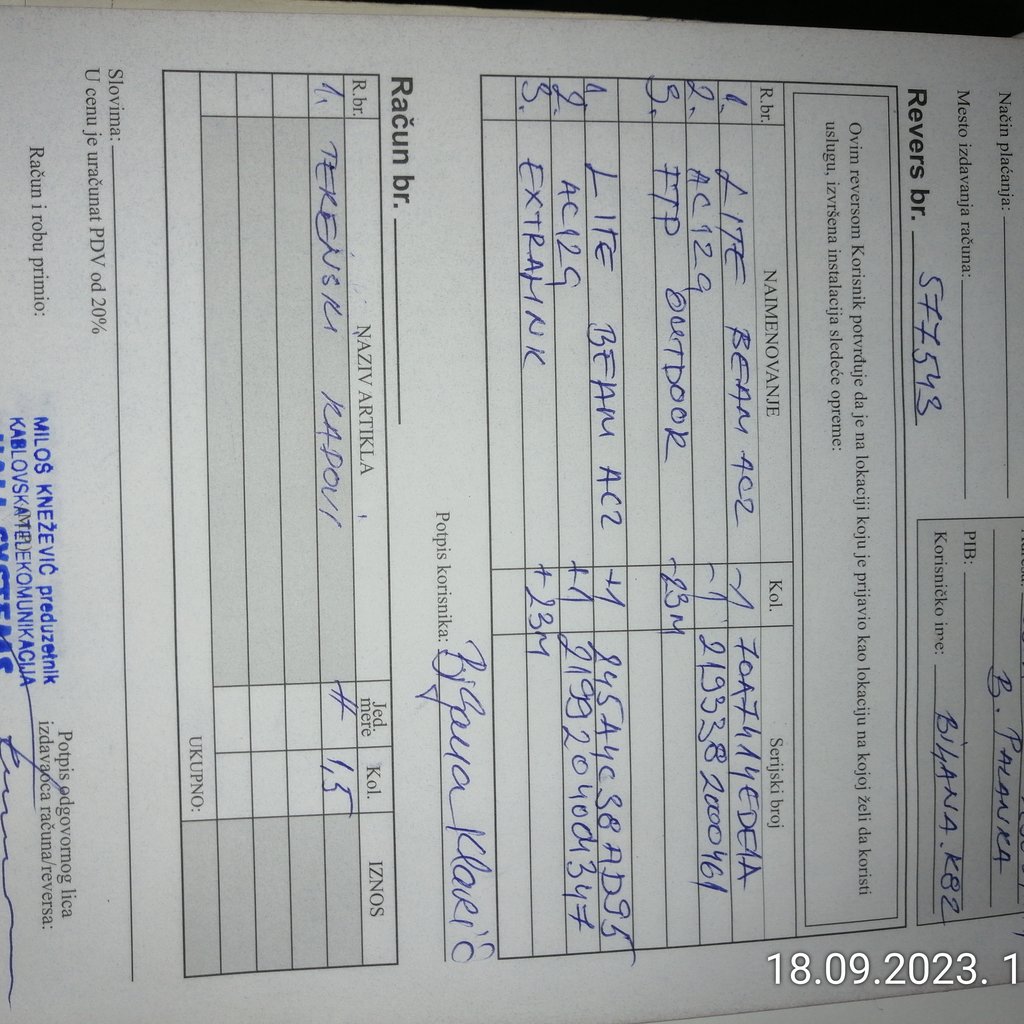 Način plaćanja:
Mesto izdavanja računa:
B. PALANKA
PIB:
Korisničko ime: BILJANA.K82
Revers br. 577543
Ovim reversom Korisnik potvrđuje da je na lokaciji koju je prijavio kao lokaciju na kojoj želi da koristi
uslugu, izvršena instalacija sledeće opreme:
R.br. NAIMENOVANJE Kol. Serijski broj
1. LITE BEAM AC2 -1
2. AC12G -1
3. FTP OUTDOOR -23M
1. LITE BEAM AC2 +1
2. AC12G +1
3. EXTRALINK +23M
Potpis korisnika: Biljana Klarić
Račun br.
R.br. NAZIV ARTIKLA Jed. mere Kol. IZNOS
1. TERENSKI RADOVI H 1,5
UKUPNO:
Slovima:
U cenu je uračunat PDV od 20%
Račun i robu primio:
Potpis odgovornog lica
izdavaoca računa/reversa:
MILOŠ KNEŽEVIĆ preduzetnik
KABLOVSKA TELEKOMUNIKACIJA
18.09.2023. 1